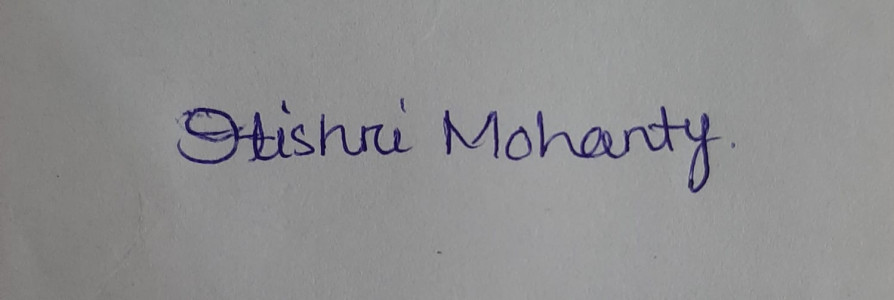 Itishri Mohanty.